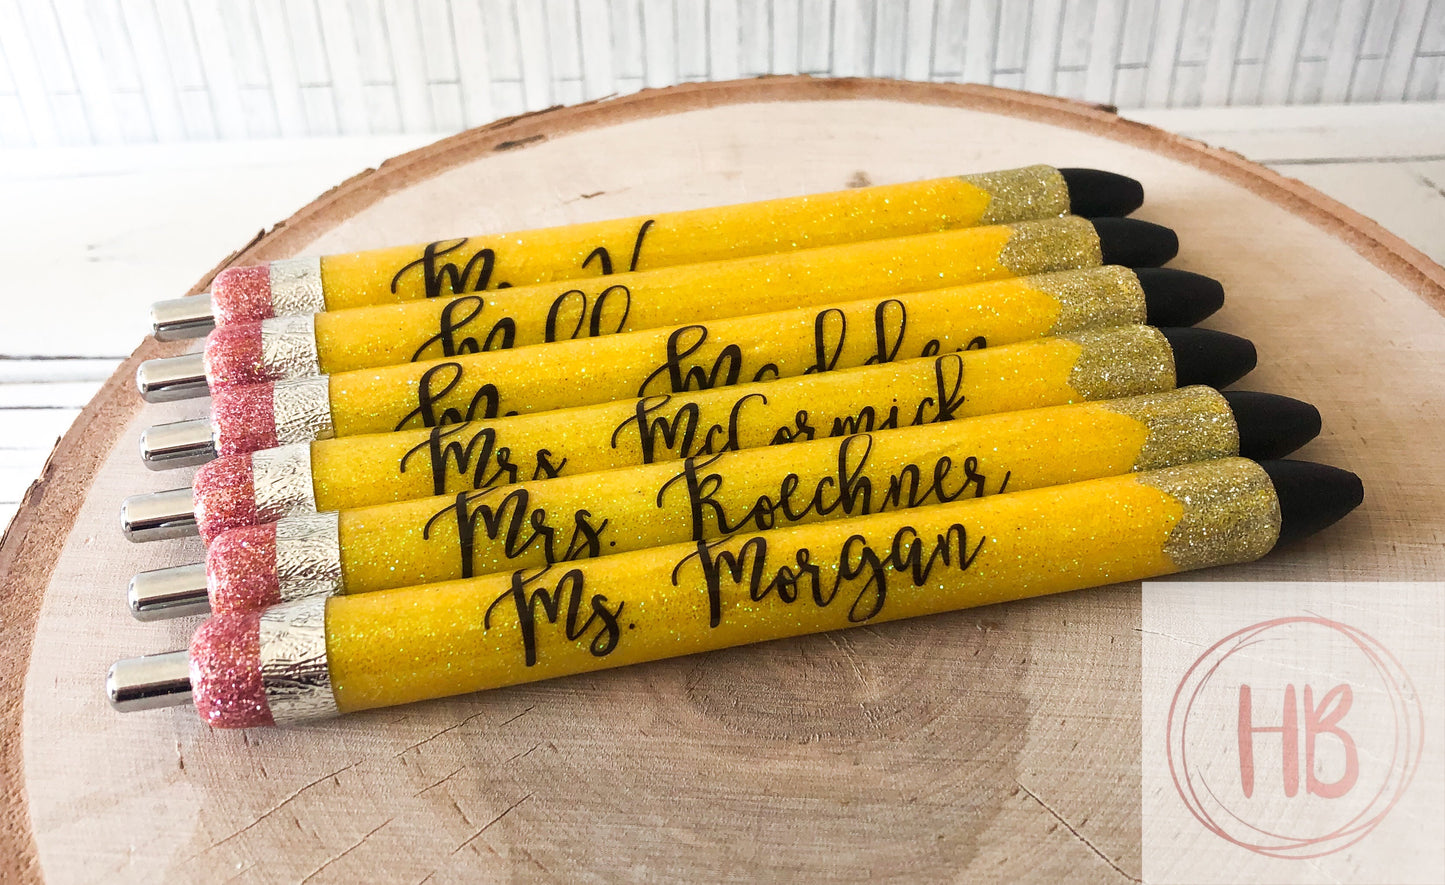 Madden
Mrs McCormick
Mrs. Koechner
Ms. Morgan
HB